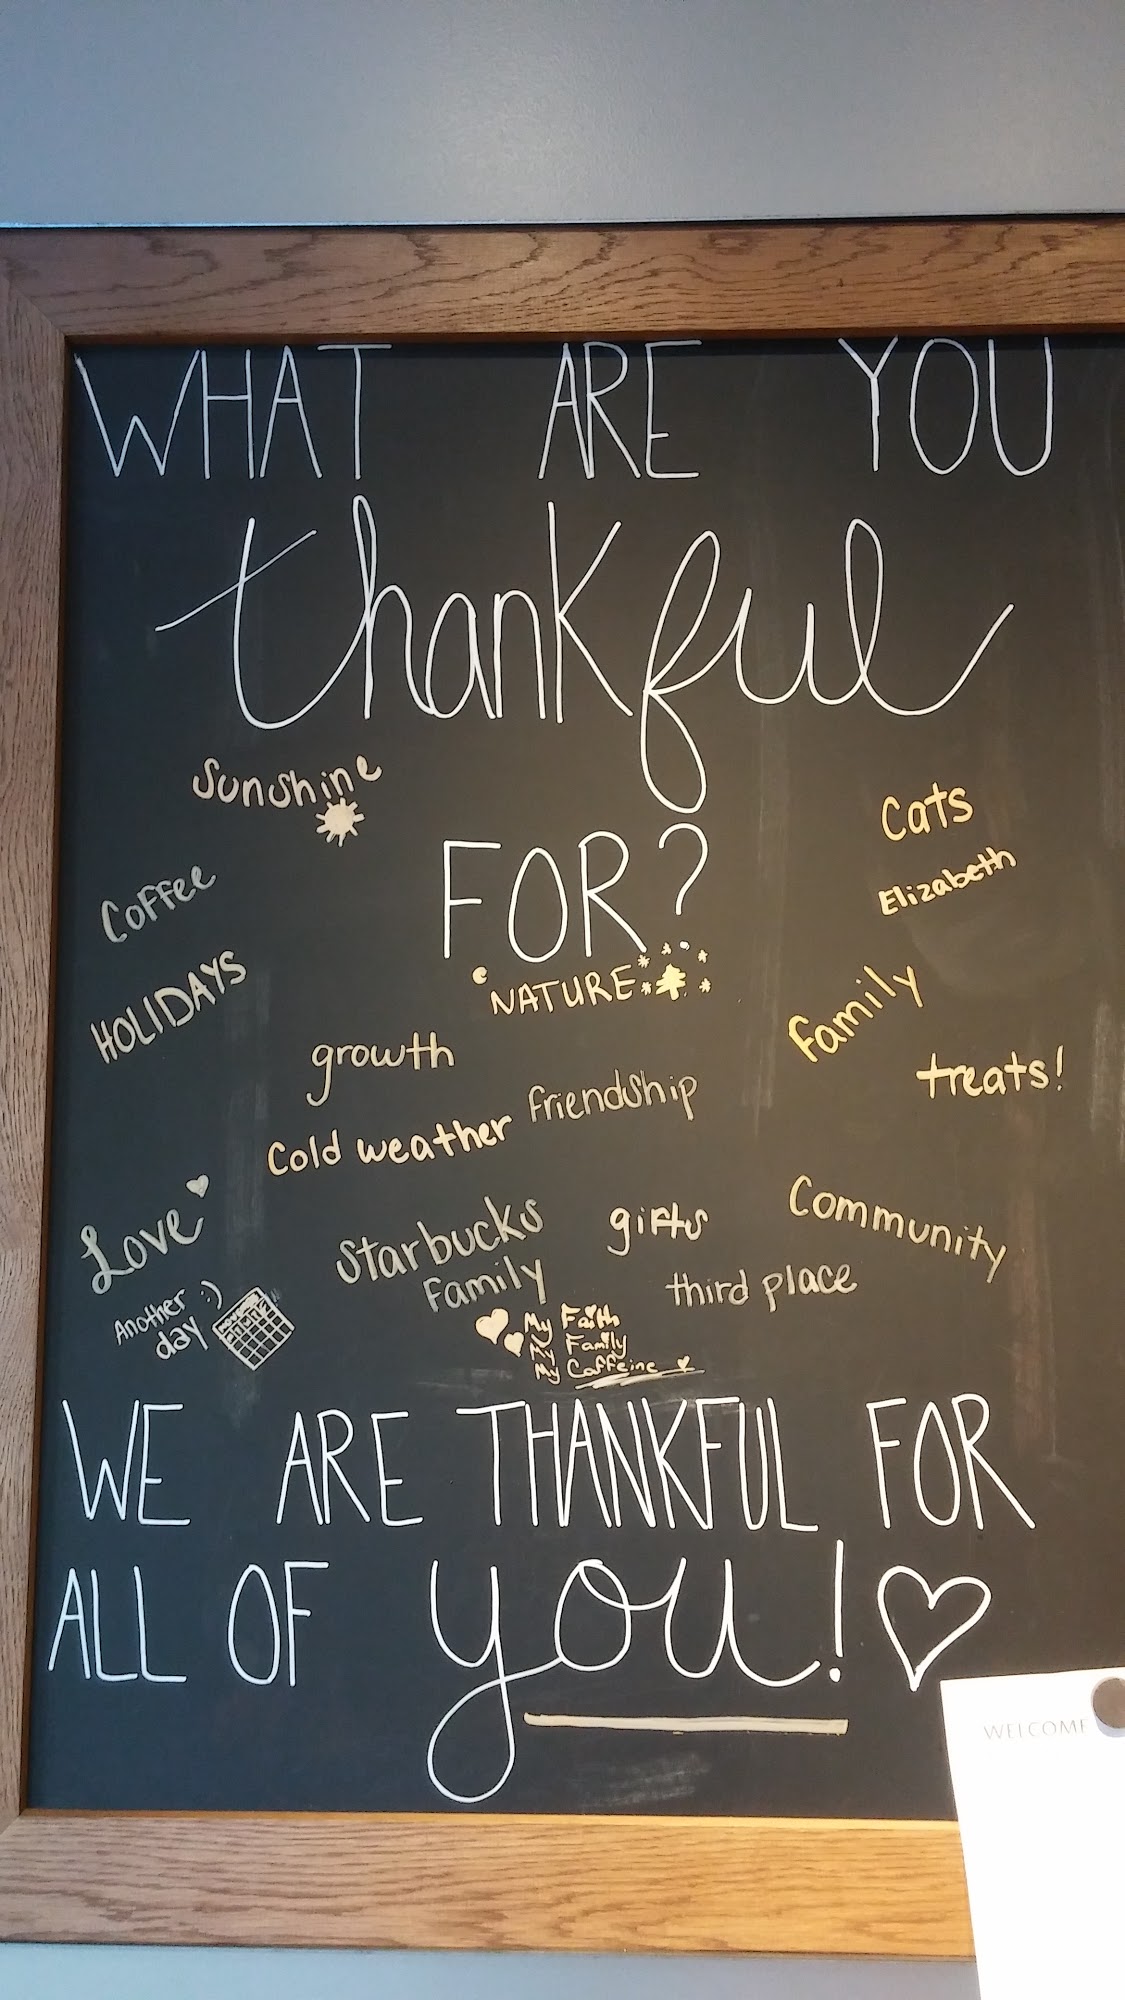 WHAT ARE YOU
thankful
FOR?
Sunshine
Cats
Elizabeth
Coffee
HOLIDAYS
NATURE
Family
growth
treats!
friendship
Cold weather
Love
Starbucks
Family
gifts
Community
third place
Another :)
day
My Faith
My Family
My Caffeine
WE ARE THANKFUL FOR
ALL OF you!
WELCOME